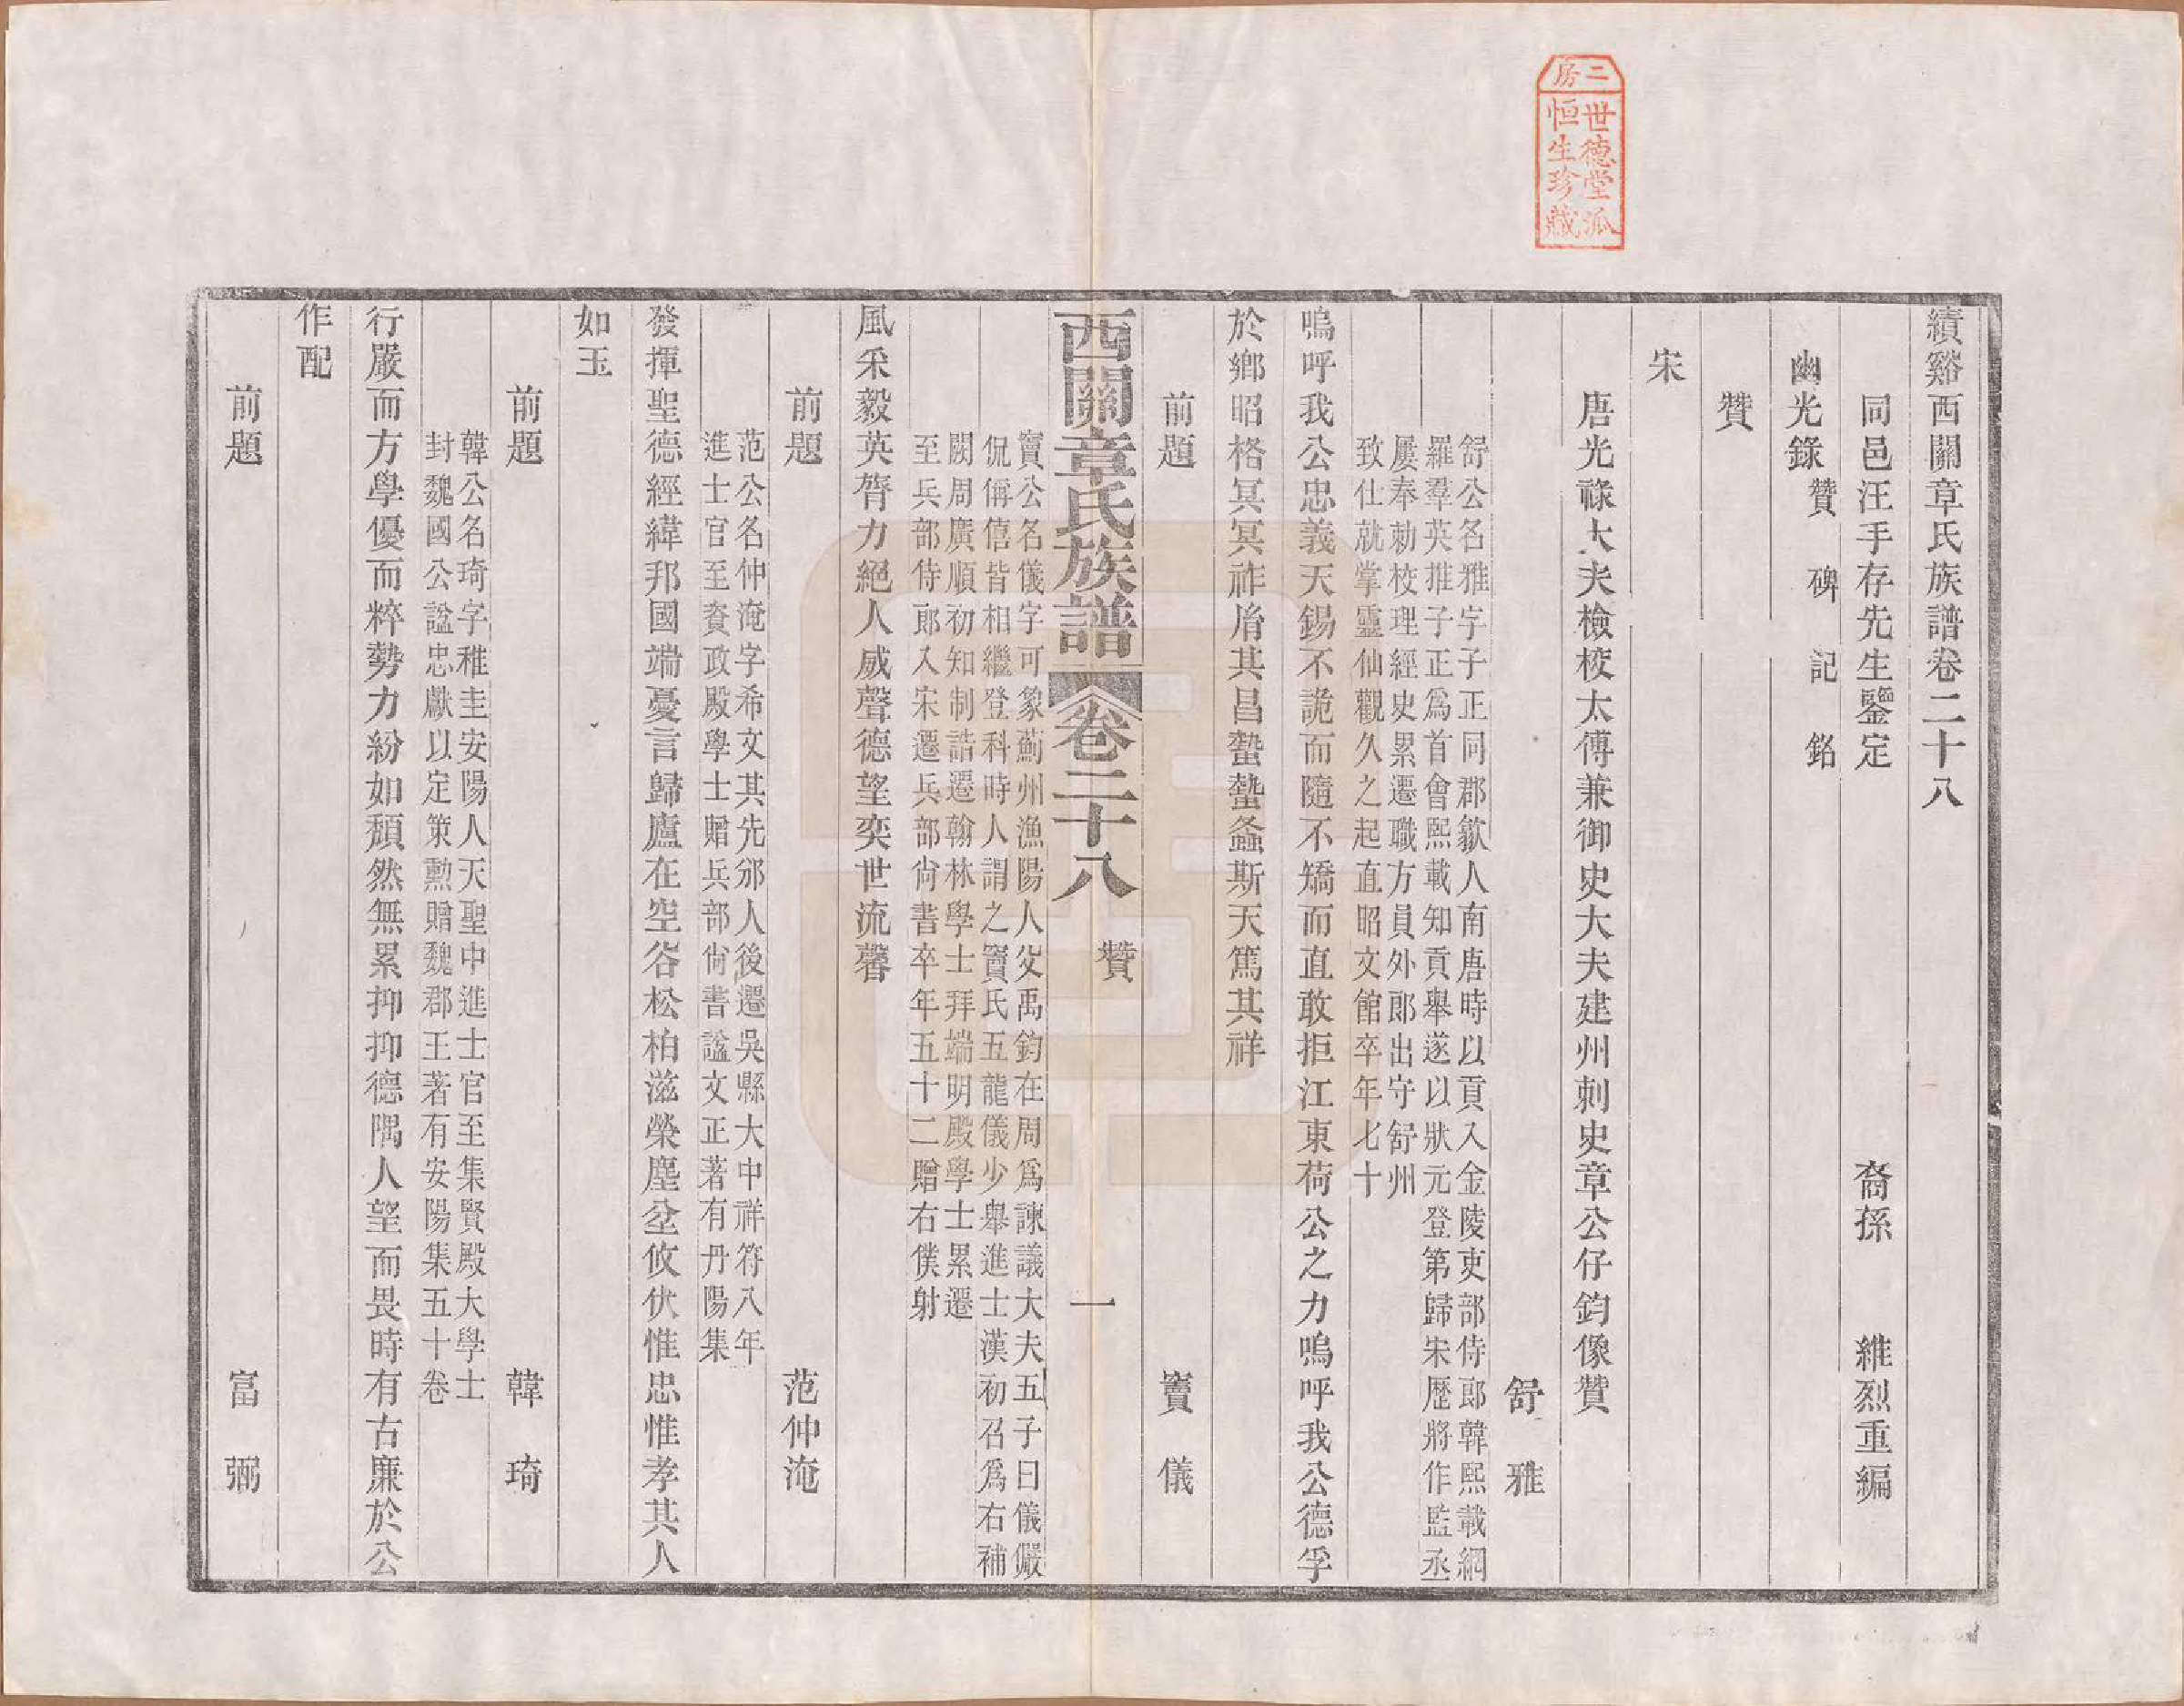 二房
世德堂派
恒生珍藏
績谿西關章氏族譜卷二十八
同邑汪手存先生鑒定 裔孫 維烈重編
幽光錄 贊 碑 記 銘
贊
宋
唐光祿大夫檢校太傅兼御史大夫建州刺史章公仔鈞像贊
舒 雅
舒公名雅字子正同郡歙人南唐時以貢入金陵吏部侍郎韓熙載網
羅羣英推子正爲首會熙載知貢舉遂以狀元登第歸宋歷將作監丞
屢奉勅校理經史累遷職方員外郎出守舒州
致仕就掌靈仙觀久之起直昭文館卒年七十
嗚呼我公忠義天錫不詭而隨不矯而直敢拒江東荷公之力嗚呼我公德孚
於鄉昭格冥冥祚胤其昌蟄蟄螽斯天篤其祥
前題 竇 儀
西關章氏族譜 卷二十八 贊 一
竇公名儀字可象薊州漁陽人父禹鈞在周爲諫議大夫五子曰儀儼
侃偁僖皆相繼登科時人謂之竇氏五龍儀少舉進士漢初召爲右補
闕周廣順初知制誥遷翰林學士拜端明殿學士累遷
至兵部侍郎入宋遷兵部尙書卒年五十二贈右僕射
風采毅英膂力絕人威聲德望奕世流馨
前題 范仲淹
范公名仲淹字希文其先邠人後遷吳縣大中祥符八年
進士官至叅政殿學士贈兵部尙書諡文正著有丹陽集
發揮聖德經緯邦國端憂言歸廬在空谷松柏滋榮塵坌攸伏惟忠惟孝其人
如玉
前題 韓 琦
韓公名琦字稚圭安陽人天聖中進士官至集賢殿大學士
封魏國公諡忠獻以定策勳贈魏郡王著有安陽集五十卷
行嚴而方學優而粹勢力紛如頹然無累抑抑德隅人望而畏時有古廉於公
作配
前題 富 弼